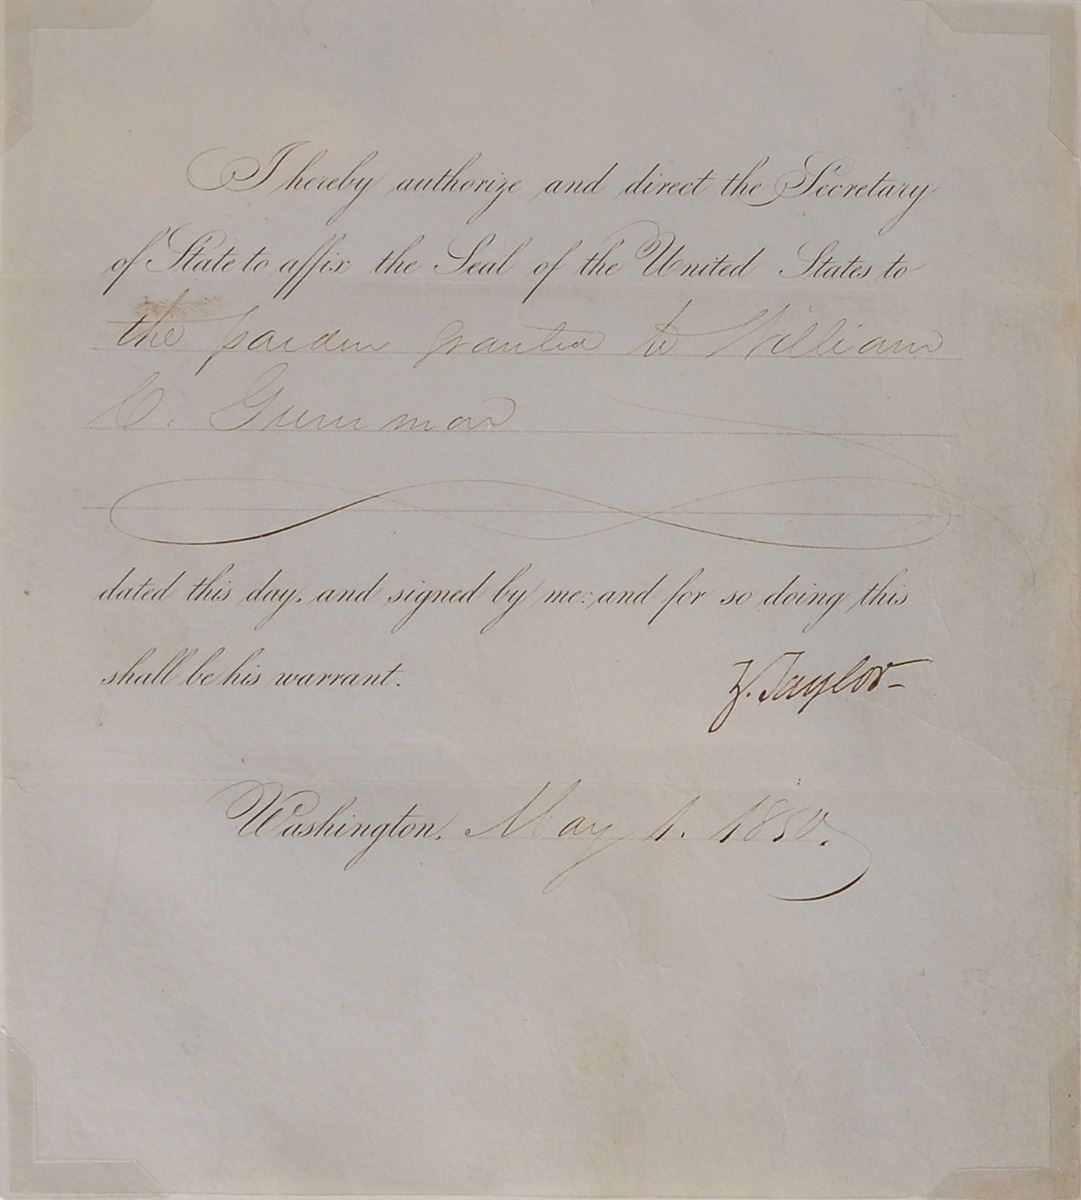 I hereby authorize and direct the Secretary
of State to affix the Seal of the United States to
the pardon granted to William
C.
dated this day, and signed by me: and for so doing this
shall be his warrant.
Z. Taylor
Washington, May 1. 1850.